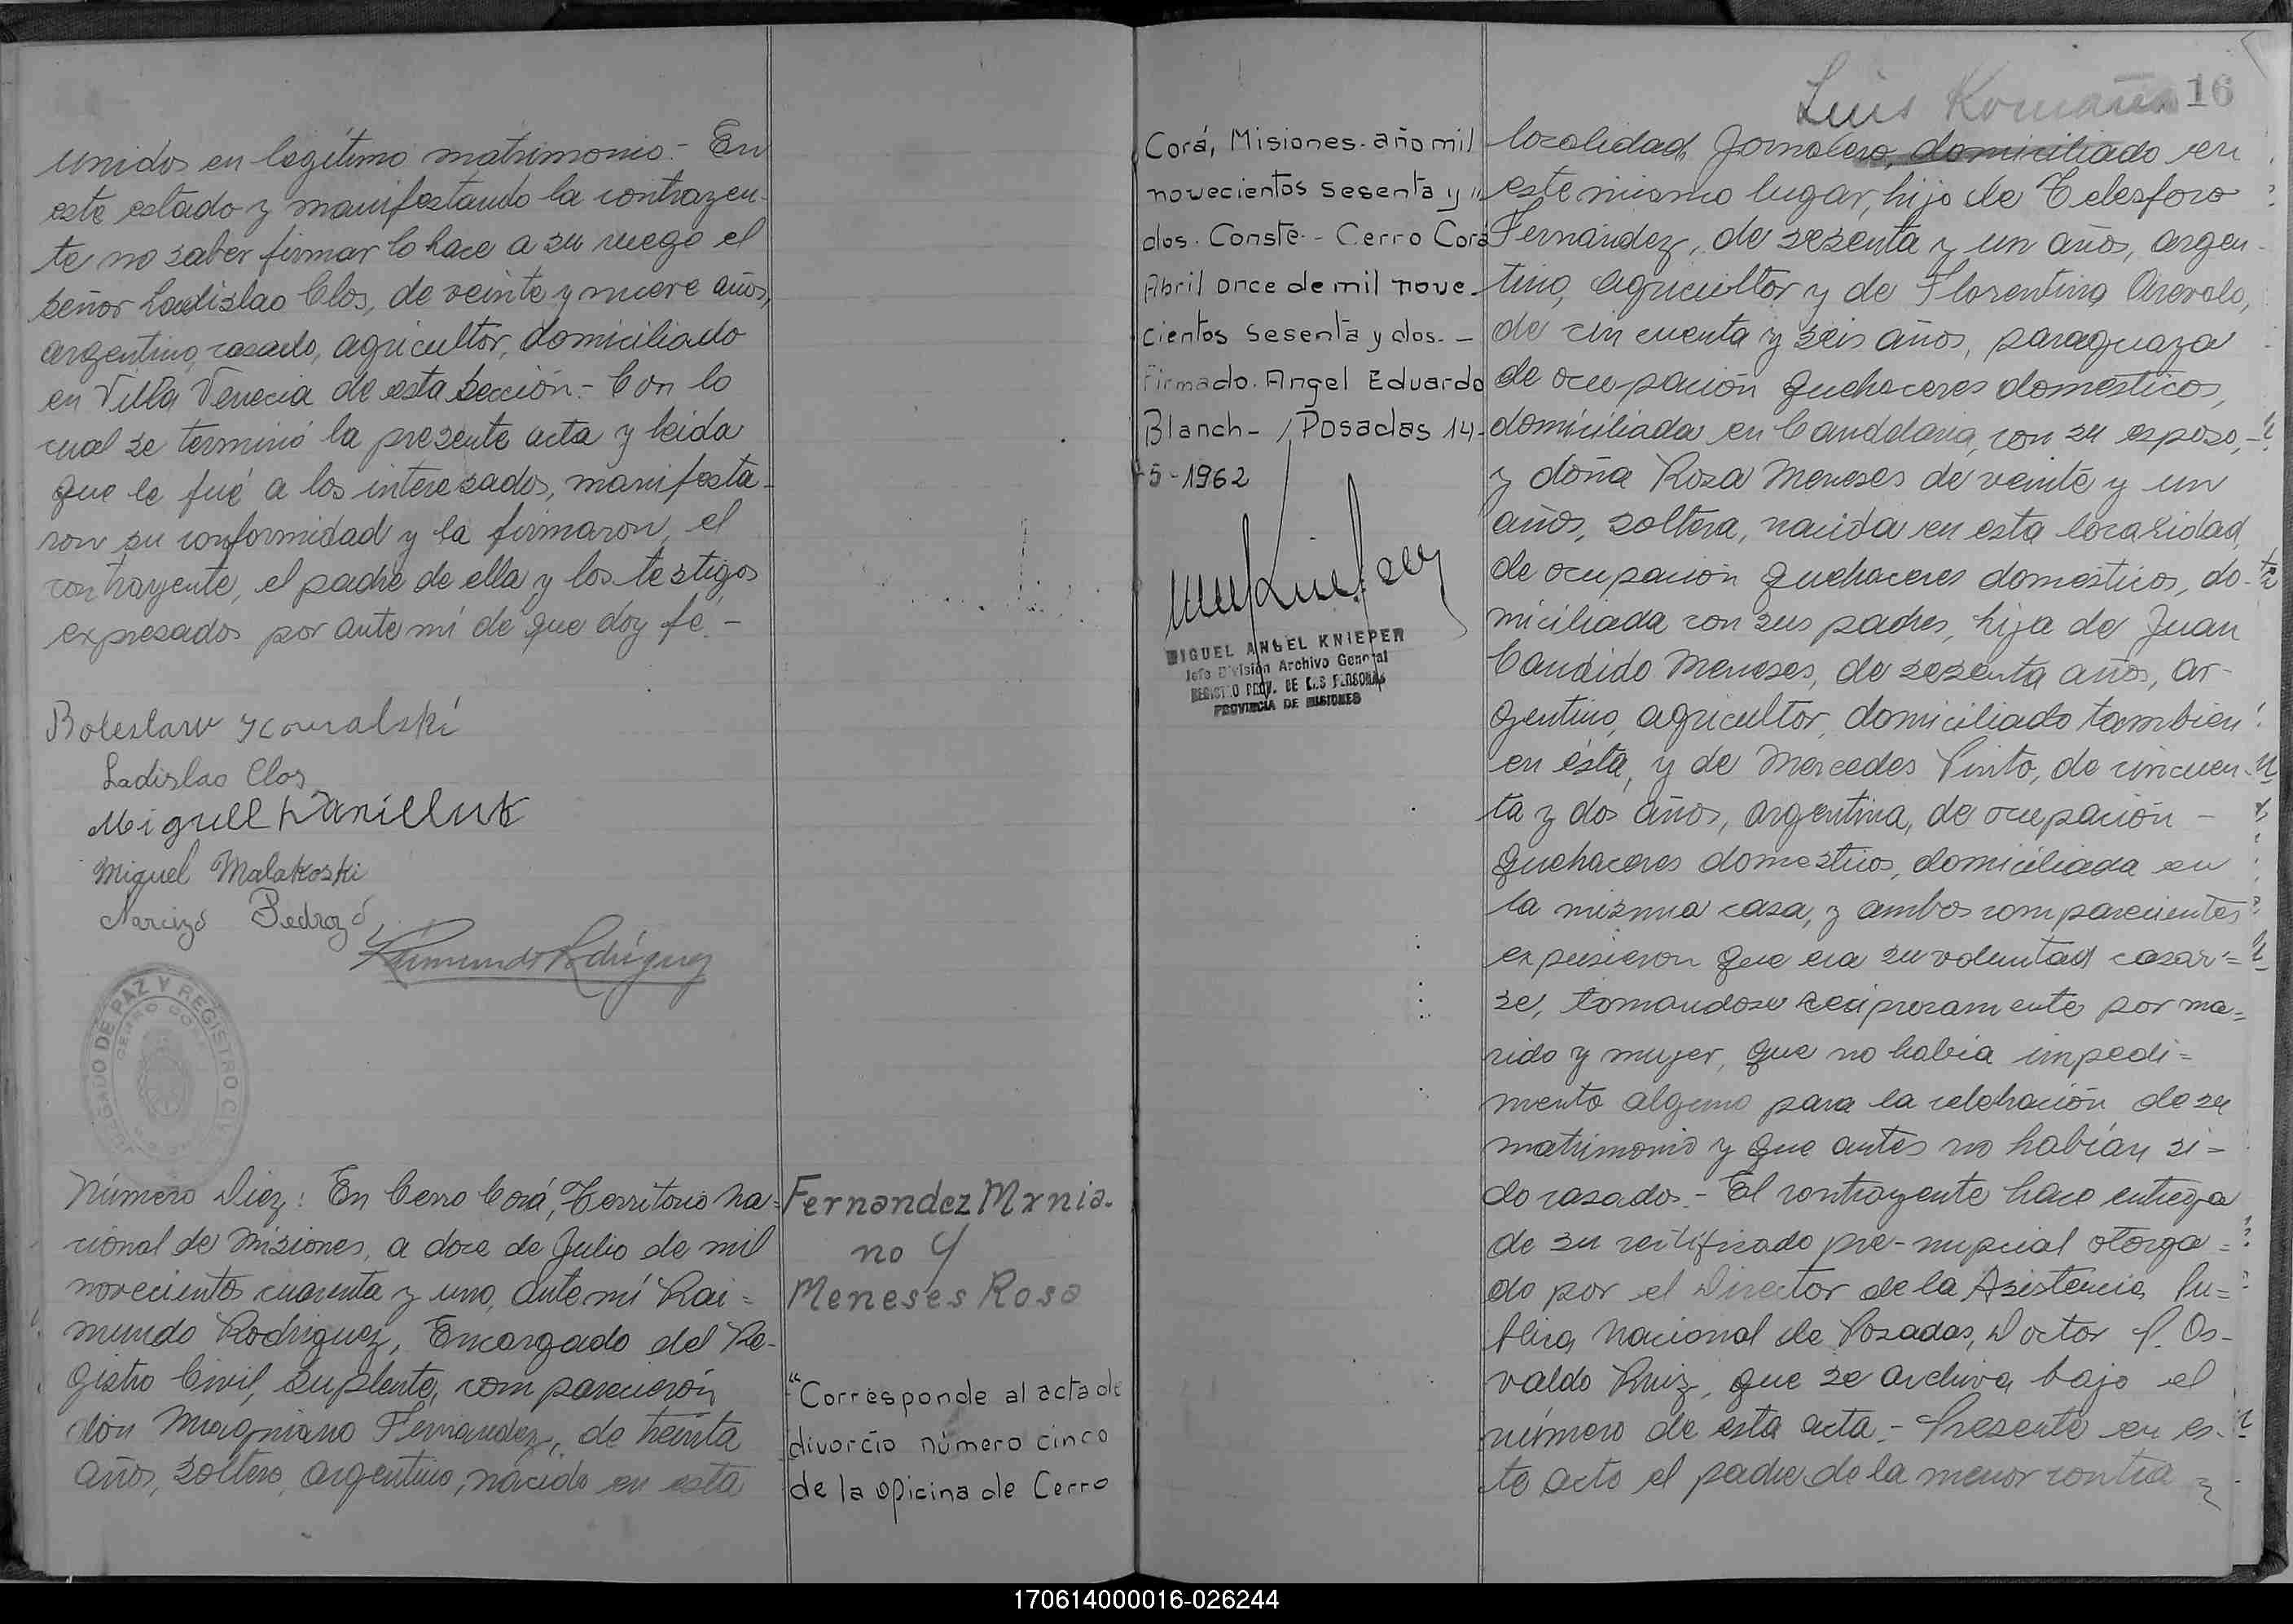 unidos en legítimo matrimonio.- En
este estado y manifestando la contrayen-
te no saber firmar lo hace a su ruego el
señor Ladislao Clos, de veinte y nueve años,
argentino, casado, agricultor, domiciliado
en Villa Venecia de esta sección.- Con lo
cual se terminó la presente acta y leida
que le fué a los interesados, manifesta-
ron su conformidad y la firmaron, el
contrayente, el padre de ella y los testigos
expresados por ante mí de que doy fé.-
Boleslaw Kowalski
Ladislao Clos
Miguel Daniluk
Miguel Malakoski
Narcizo Pedrozo
Raimundo Rodriguez
JUZGADO DE PAZ Y REGISTRO CIVIL
CERRO CO
Número Diez: En Cerro Corá, Territorio Na-
cional de Misiones, a doce de Julio de mil
novecientos cuarenta y uno, ante mí Rai=
mundo Rodriguez, Encargado del Re-
gistro Civil, Suplente, comparecieron
don Magniano Fernandez, de treinta
años, soltero, argentino, nacido en esta
Fernandez Mxnia-
no y
Meneses Rosa
"Corresponde al acta de
divorcio número cinco
de la oficina de Cerro
Corá, Misiones- año mil
novecientos sesenta y "
dos. Conste.- Cerro Corá
Abril once de mil nove-
cientos sesenta y dos.-
Firmado. Angel Eduardo
Blanch- / Posadas 14-
5-1962
MIGUEL ANGEL KNIEPER
Jefe División Archivo General
REGISTRO PROV. DE LAS PERSONAS
PROVINCIA DE MISIONES
Luis 16
localidad, Jornalero, domiciliado en
este mismo lugar, hijo de Telesforo
Fernández, de sesenta y un años, argen-
tino, agricultor y de Florentina Arevalo,
de cincuenta y seis años, paraguaya
de ocupación quehaceres domésticos,
domiciliada en Candelaria, con su esposo,-
y doña Rosa Meneses de veinte y un
años, soltera, nacida en esta localidad,
de ocupación quehaceres domésticos, do-
miciliada con sus padres, hija de Juan
Candido Meneses, de sesenta años, ar-
gentino, agricultor, domiciliado tambien
en ésta, y de Mercedes Pinto, de cincuen-
ta y dos años, argentina, de ocupación -
quehaceres domesticos, domiciliada en
la misma casa, y ambos comparecientes
expusieron que era su voluntad casar=
se, tomandose reciprocamente por ma=
rido y mujer, que no habia impedi=
mento alguno para la celebración de su
matrimonio y que antes no habían si=
do casados.- El contrayente hace entrega
de su certificado pre-nupcial otorga=
do por el Director de la Asistencia Pu=
blica Nacional de Posadas, Doctor P. Os-
valdo Ruiz, que se archiva bajo el
número de esta acta.- Presente en es-
te acto el padre de la menor contra
170614000016-026244